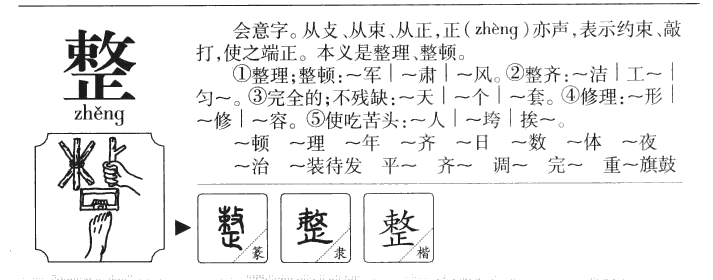 整
zhěng
会意字。从攴、从束、从正,正(zhèng)亦声,表示约束、敲
打,使之端正。本义是整理、整顿。
①整理;整顿:～军｜～肃｜～风。②整齐:～洁｜工～｜
匀～。③完全的;不残缺:～天｜～个｜～套。④修理:～形｜
～修｜～容。⑤使吃苦头:～人｜～垮｜挨～。
～顿 ～理 ～年 ～齐 ～日 ～数 ～体 ～夜
～治 ～装待发 平～ 齐～ 调～ 完～ 重～旗鼓
整 篆 整 隶 整 楷